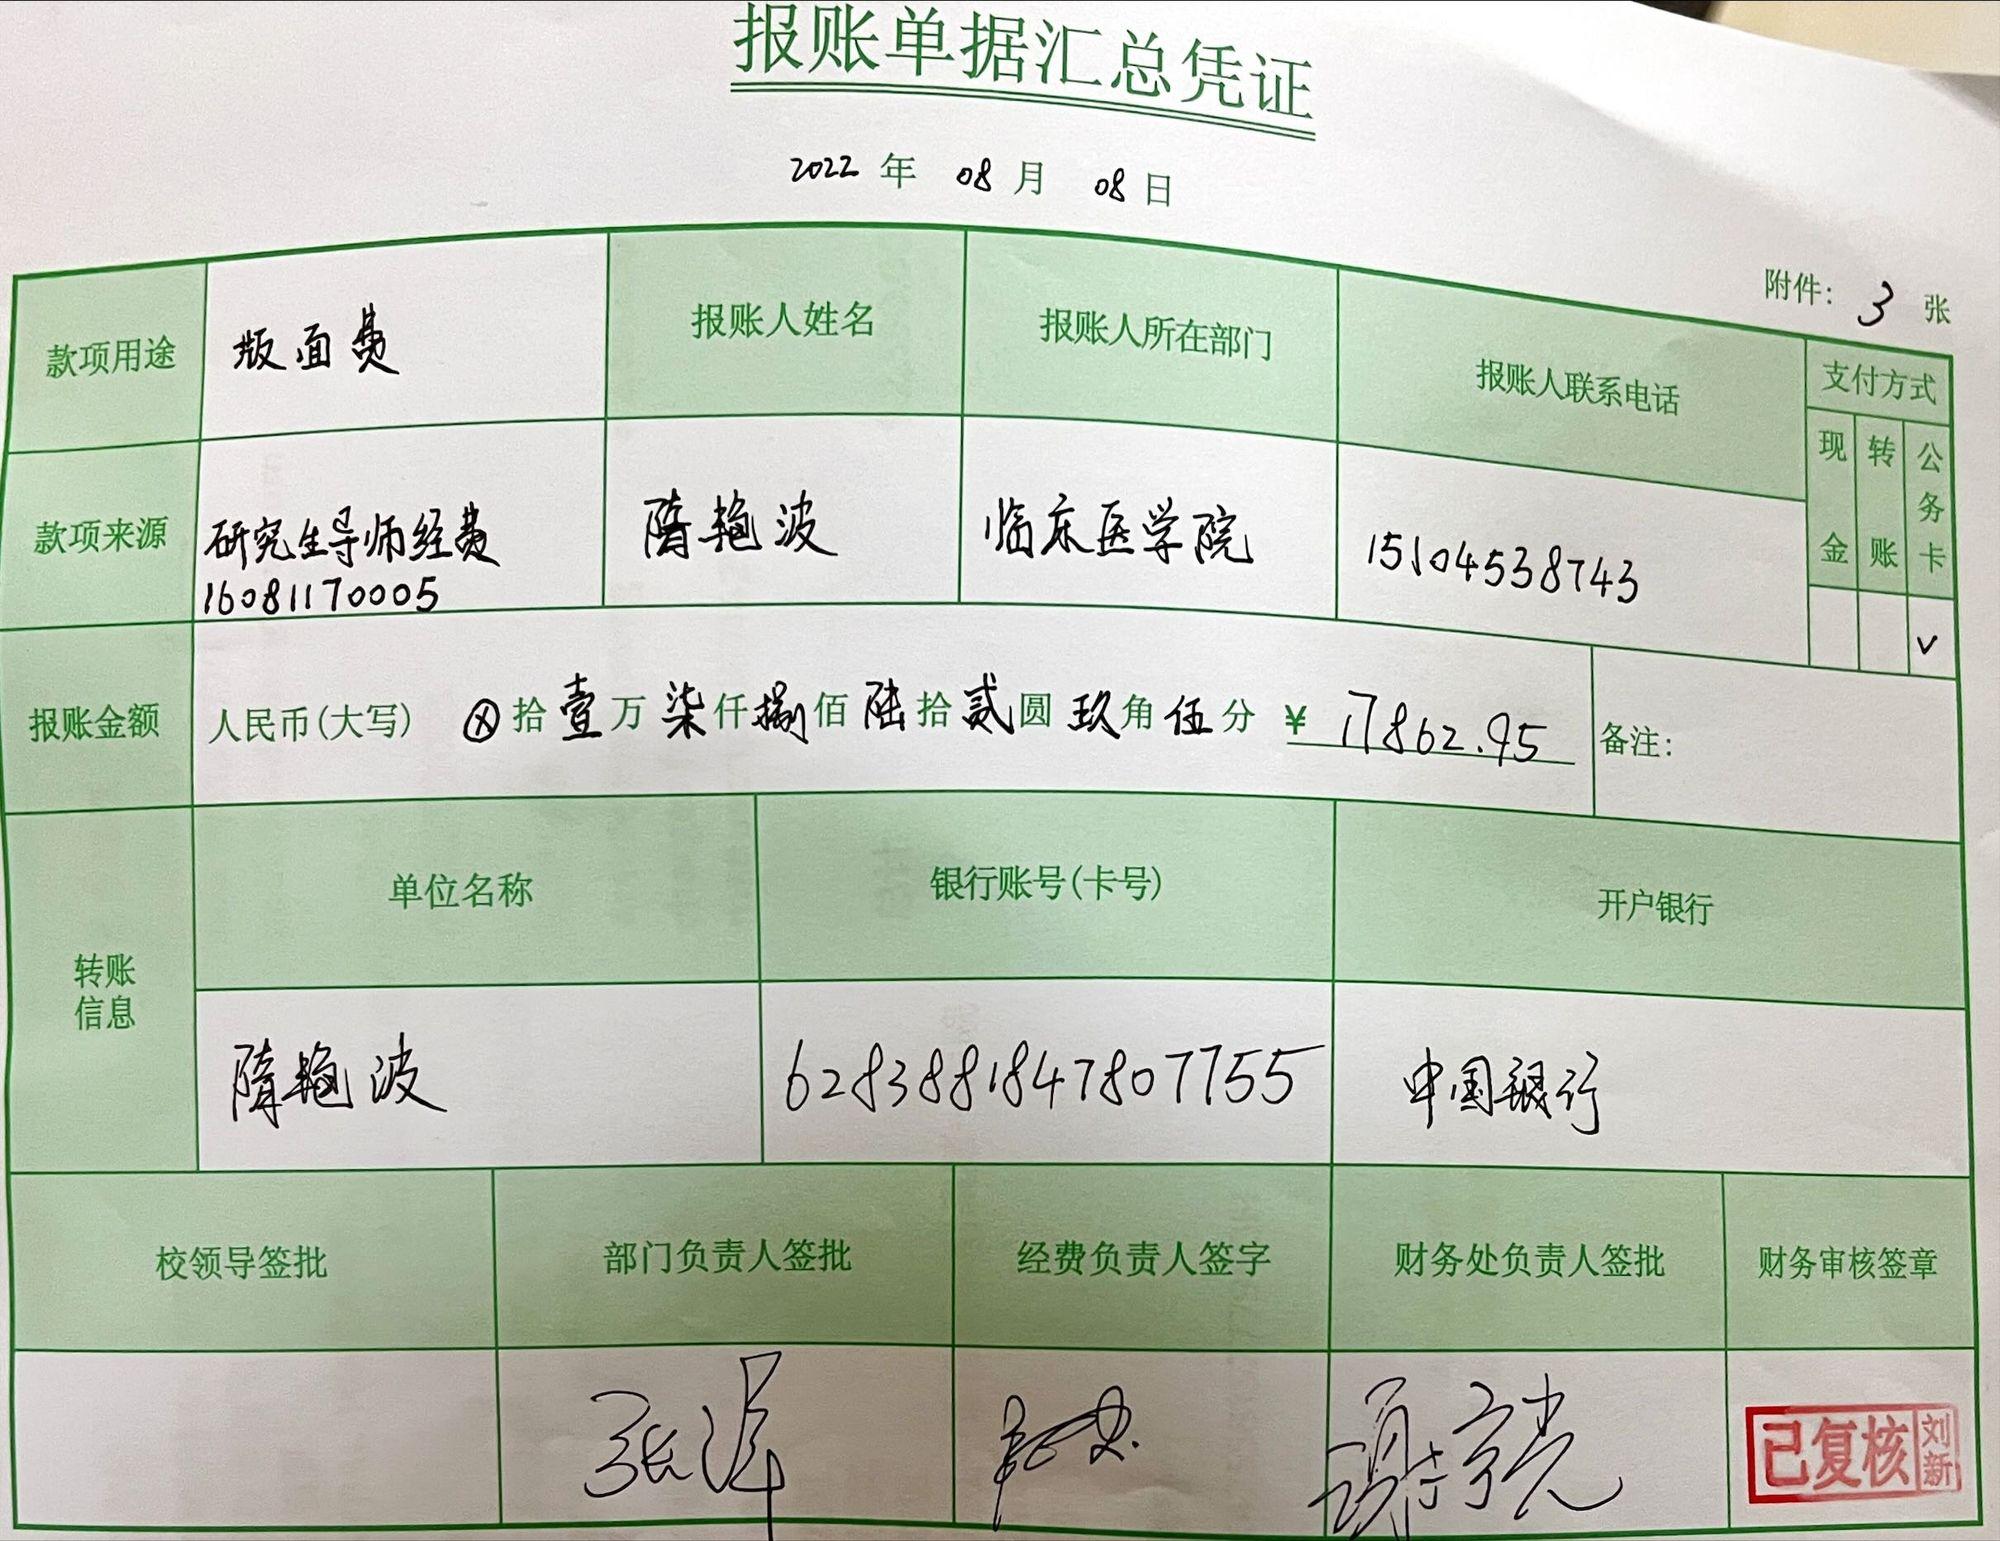 报账单据汇总凭证
2022 年 08 月 08 日
附件: 3 张
款项用途 版面费 报账人姓名 报账人所在部门 报账人联系电话 支付方式
现金 转账 公务卡
款项来源 研究生导师经费 隋艳波 临床医学院 15104538743
16081170005
√
报账金额 人民币(大写) ⊗拾壹万柒仟捌佰陆拾贰圆玖角伍分 ¥ 17862.95 备注:
转账信息 单位名称 银行账号(卡号) 开户银行
隋艳波 6283881847807755 中国银行
校领导签批 部门负责人签批 经费负责人签字 财务处负责人签批 财务审核签章
已复核 刘新